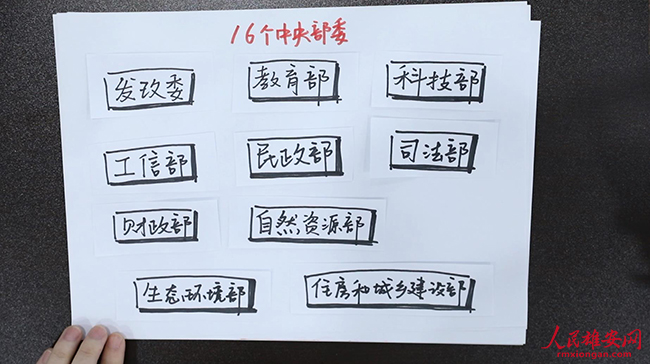 16个中央部委
发改委
教育部
科技部
工信部
民政部
司法部
财政部
自然资源部
生态环境部
住房和城乡建设部
人民雄安网
rmxiongan.com